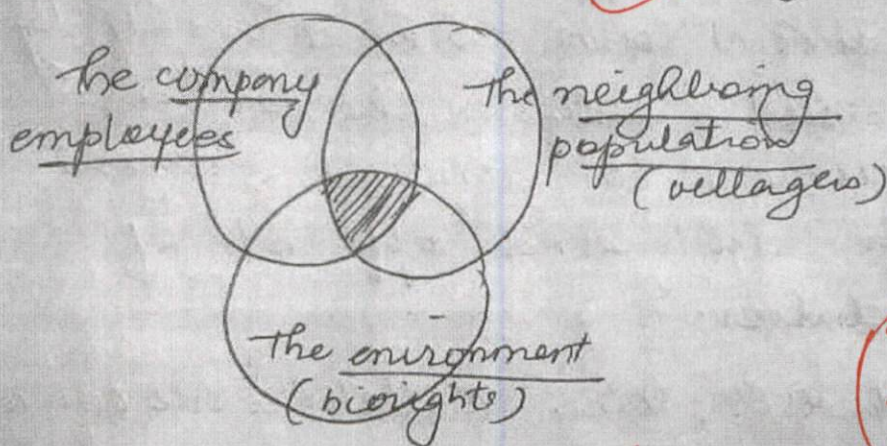 The company
employees
The neighboring
population
(villagers)
The enironment
(biorights)